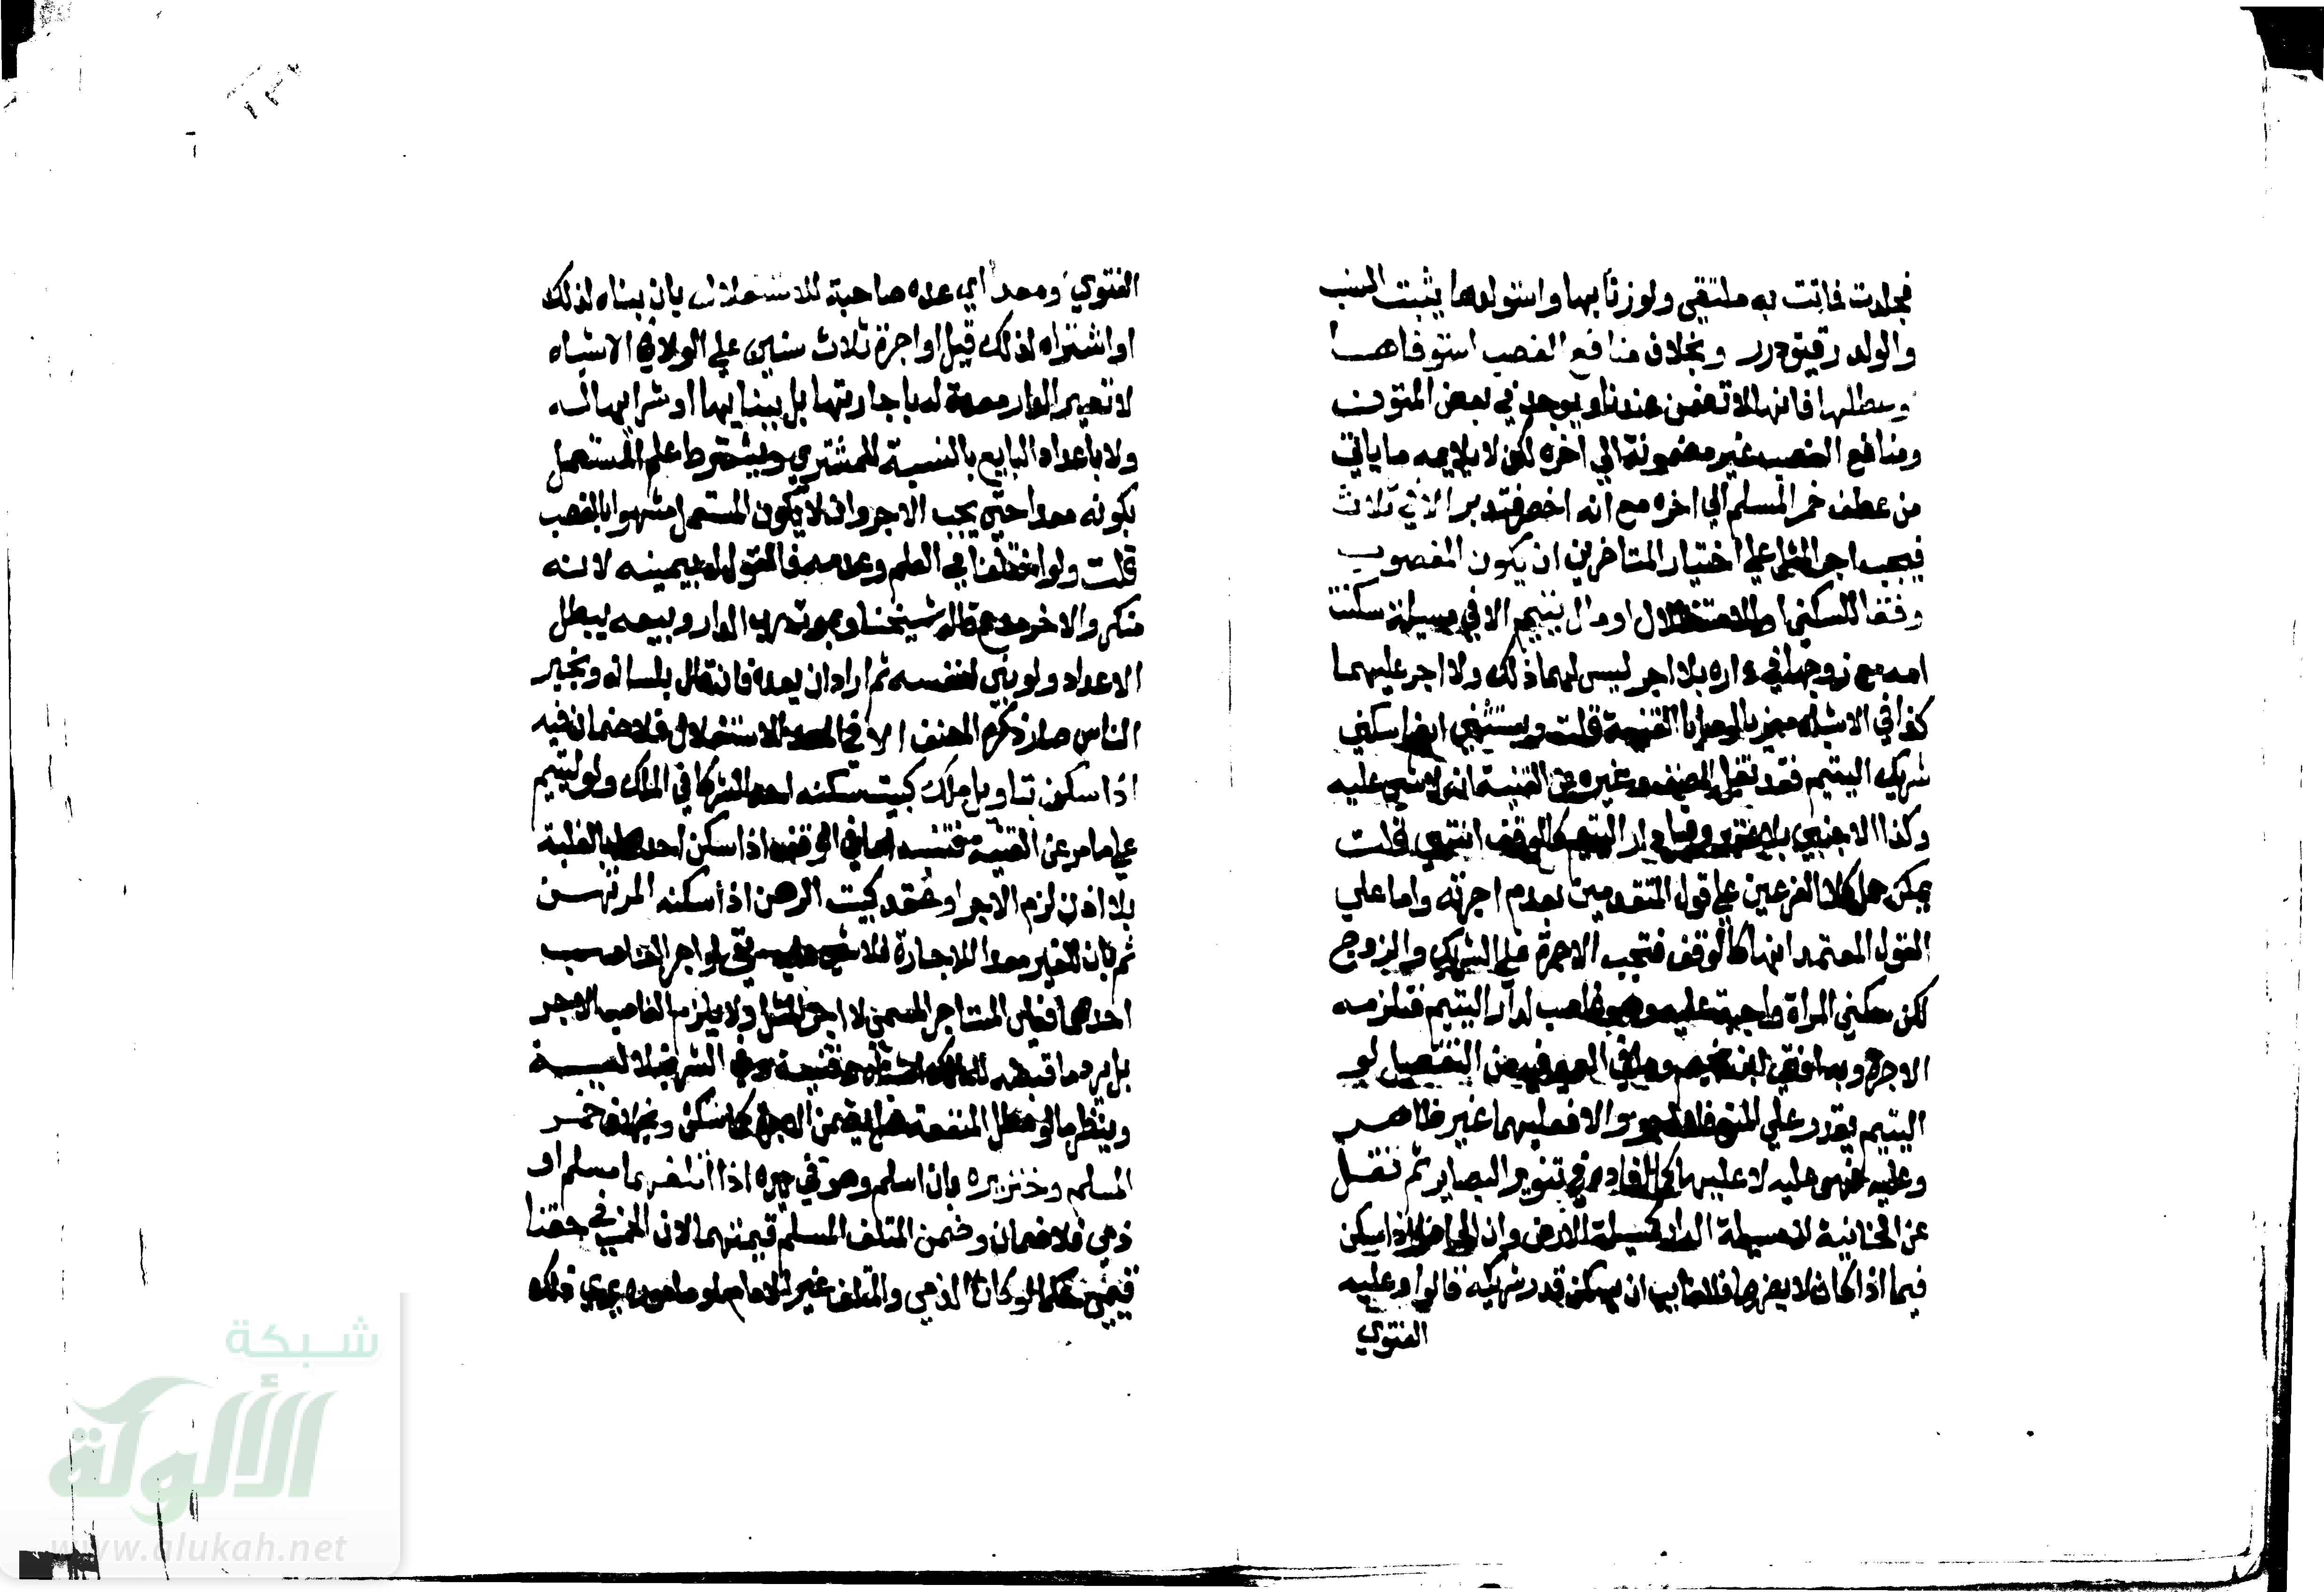 فجلدت فماتت به ملتقي ولو زنا بها واستولدها يثبت النسب
والولد رقيق درر وبخلاف منافع الغصب استوفاهـا
وعطلها فانها لا تضمن عندنا ويوجد في بعض المتون
ومنافع الغصب غير مضمونة الي اخره لكن لا يلايمه ما ياتي
من عطف خمر المسلم الي اخره مع انه اخصر فتدبر الا في ثلاث
فيجب اجر المثل علي اختيار المتاخرين ان يكون المغصوب
وقفا للسكني او للاستغلال او مال يتيم الا في مسيلة سكنت
امه مع زوجها في داره بلا اجر ليس لهما ذلك ولا اجر عليهما
كذا في الاشباه معزيا لوصايا القنية قلت ويستثني ايضا سكني
شريك اليتيم فقد نقل المصنف وغيره عن القنية انه لا شي عليه
وكذا الاجنبي بلا عقد وقيل دار اليتيم كالوقف انتهي قلت
يمكن حمل كلا الفرعين علي قول المتقدمين بعدم اجرته واما علي
القول المعتمد انها كالوقف فتجب الاجرة علي الشريك والزوج
لكن سكني المراة واجبة عليه وهو غاصب لدار اليتيم فتلزمه
الاجرة وبه افتي ابن نجيم
اليتيم يقدر علي المنع والا فعليهما غير ظاهـر
وعليه فهي عليه لا عليها في تنوير البصاير ثم نقـل
عن الخانية ان مسيلة الدار كمسيلة الارض وان الحاضر اذا سكن
فيما اذا كان لا يضرها فللغايب ان يسكن قدر شريكه قالوا وعليه
الفتوي
الفتوي ومعدا اي عده صاحبه للاستغلال بان بناه لذلك
او اشتراه لذلك قيل او اجره ثلاث سنين علي الولاء الاشباه
لا تصير الدار معدة له باجارتها بل ببنايها او شرايها له
ولا باعداد البايع بالنسبة للمشتري ويشترط علم المستعمل
بكونه معدا حتي يجب الاجر وان لا يكون المستعمل مشهورا بالغصب
قلت ولو اختلفا في العلم وعدمه فالقول له بيمينه لانه
منكر والاخر مدع قاله شيخنا وبموت رب الدار وبيعه يبطل
الاعداد ولو بني لنفسه ثم اراد ان يعده فان قال بلسانه ويخبر
الناس صار ذكره المصنف الا في المعد للاستغلال فلا ضمان فيه
اذا سكن بتاويل ملك كبيت سكنه احد الشركا في الملك ولو ليتيم
علي ما مر عن القنية فتنبه اما في الوقف اذا سكن احدهما بالغلبة
بلا اذن لزم الاجر او عقد كبيت الرهن اذا سكنه المرتهـن
ثم بان للغير معدا للاجارة فلا شي عليه بقي لو اجر الغاصب
احدهما فعلي المستاجر المسمي لا اجر المثل ولا يلزم الغاصب الاجر
بل يرد ما قبضه للمالك اشباه وقنية وفي الشرنبلالـيـة
وينظر ما لو عطل المنفعة هل يضمن الاجرة كما سكن وبخلاف خمـر
المسلم وخنزيره بان اسلم وهو في يده اذا اتلفهما مسلم او
ذمي فلا ضمان وضمن المتلف المسلم قيمتهما لان الخمر في حقنا
قيمي حكما لو كانا لذمي والمتلف غير الامام او ماموره يري ذلك
شبكة
الألوكة
www.alukah.net